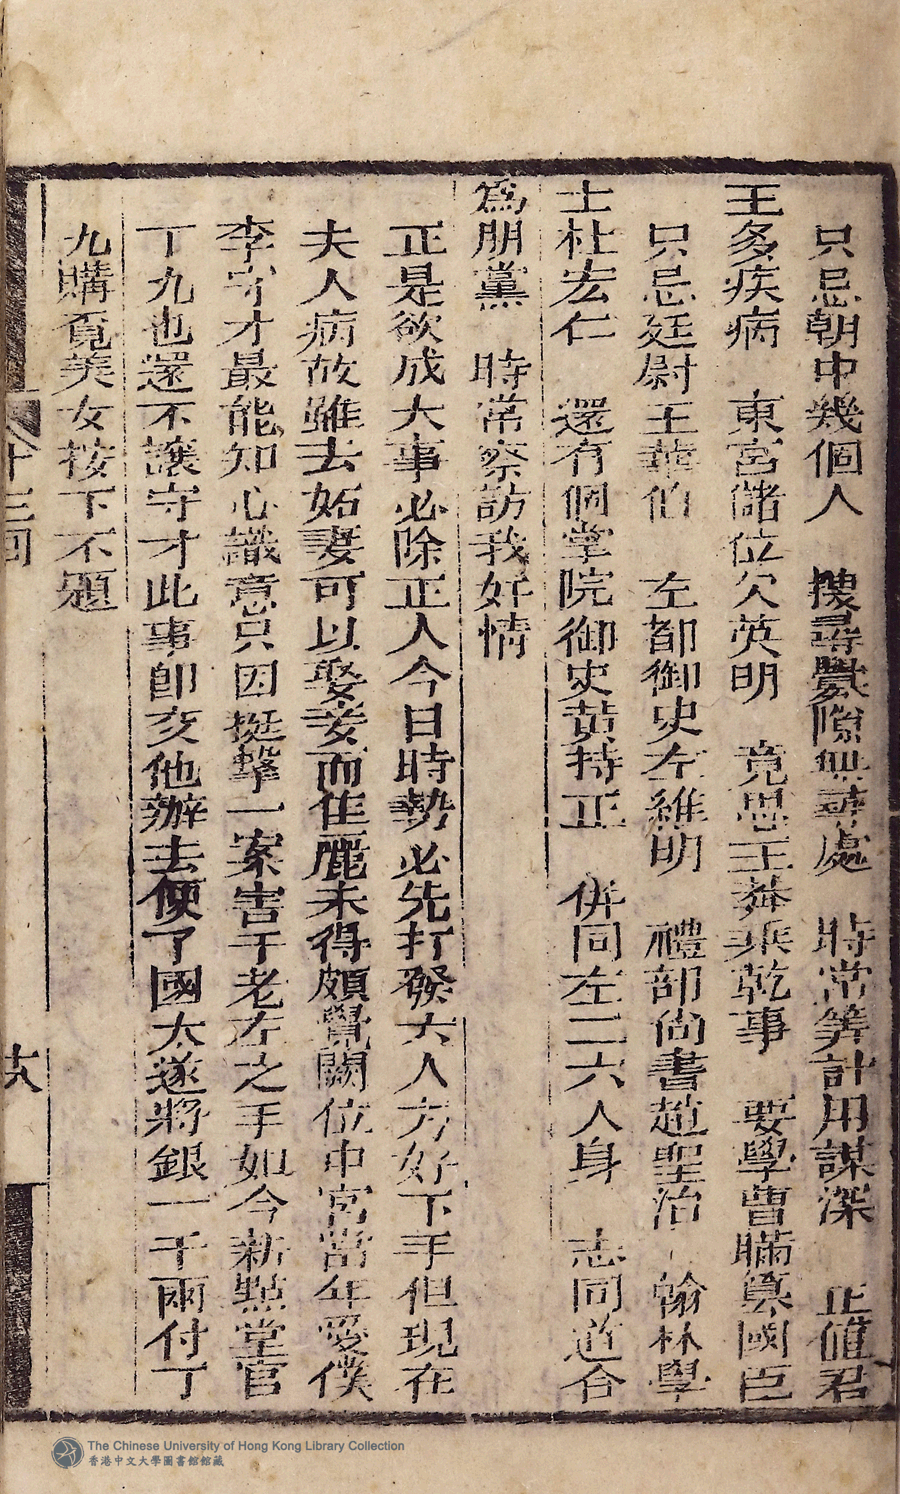 只忌朝中幾個人　搜尋釁隙無華處　時常籌計用謀深　正值君
王多疾病　東宮儲位欠英明　竟思王莽乘乾事　要學曹瞞篡國臣
只忌廷尉王華伯　左都御史左維明　禮部尚書趙聖治　翰林學
士杜宏仁　還有個掌院御史黃持正　併同左二六人身　志同道合
為朋黨　時常察訪我奸情
正是欲成大事必除正人今日時勢必先打發六人方好下手但現在
夫人病故雖去妬妻可以娶妾而佳麗未得頗覺闕位中宮當年愛僕
李守才最能知心識意只因挺擊一案害于老左之手如今新點堂官
丁九也還不讓守才此事即交他辦去便了國太遂將銀一千兩付丁
九購覓美女按下不題
十三回
十八
The Chinese University of Hong Kong Library Collection
香港中文大學圖書館館藏